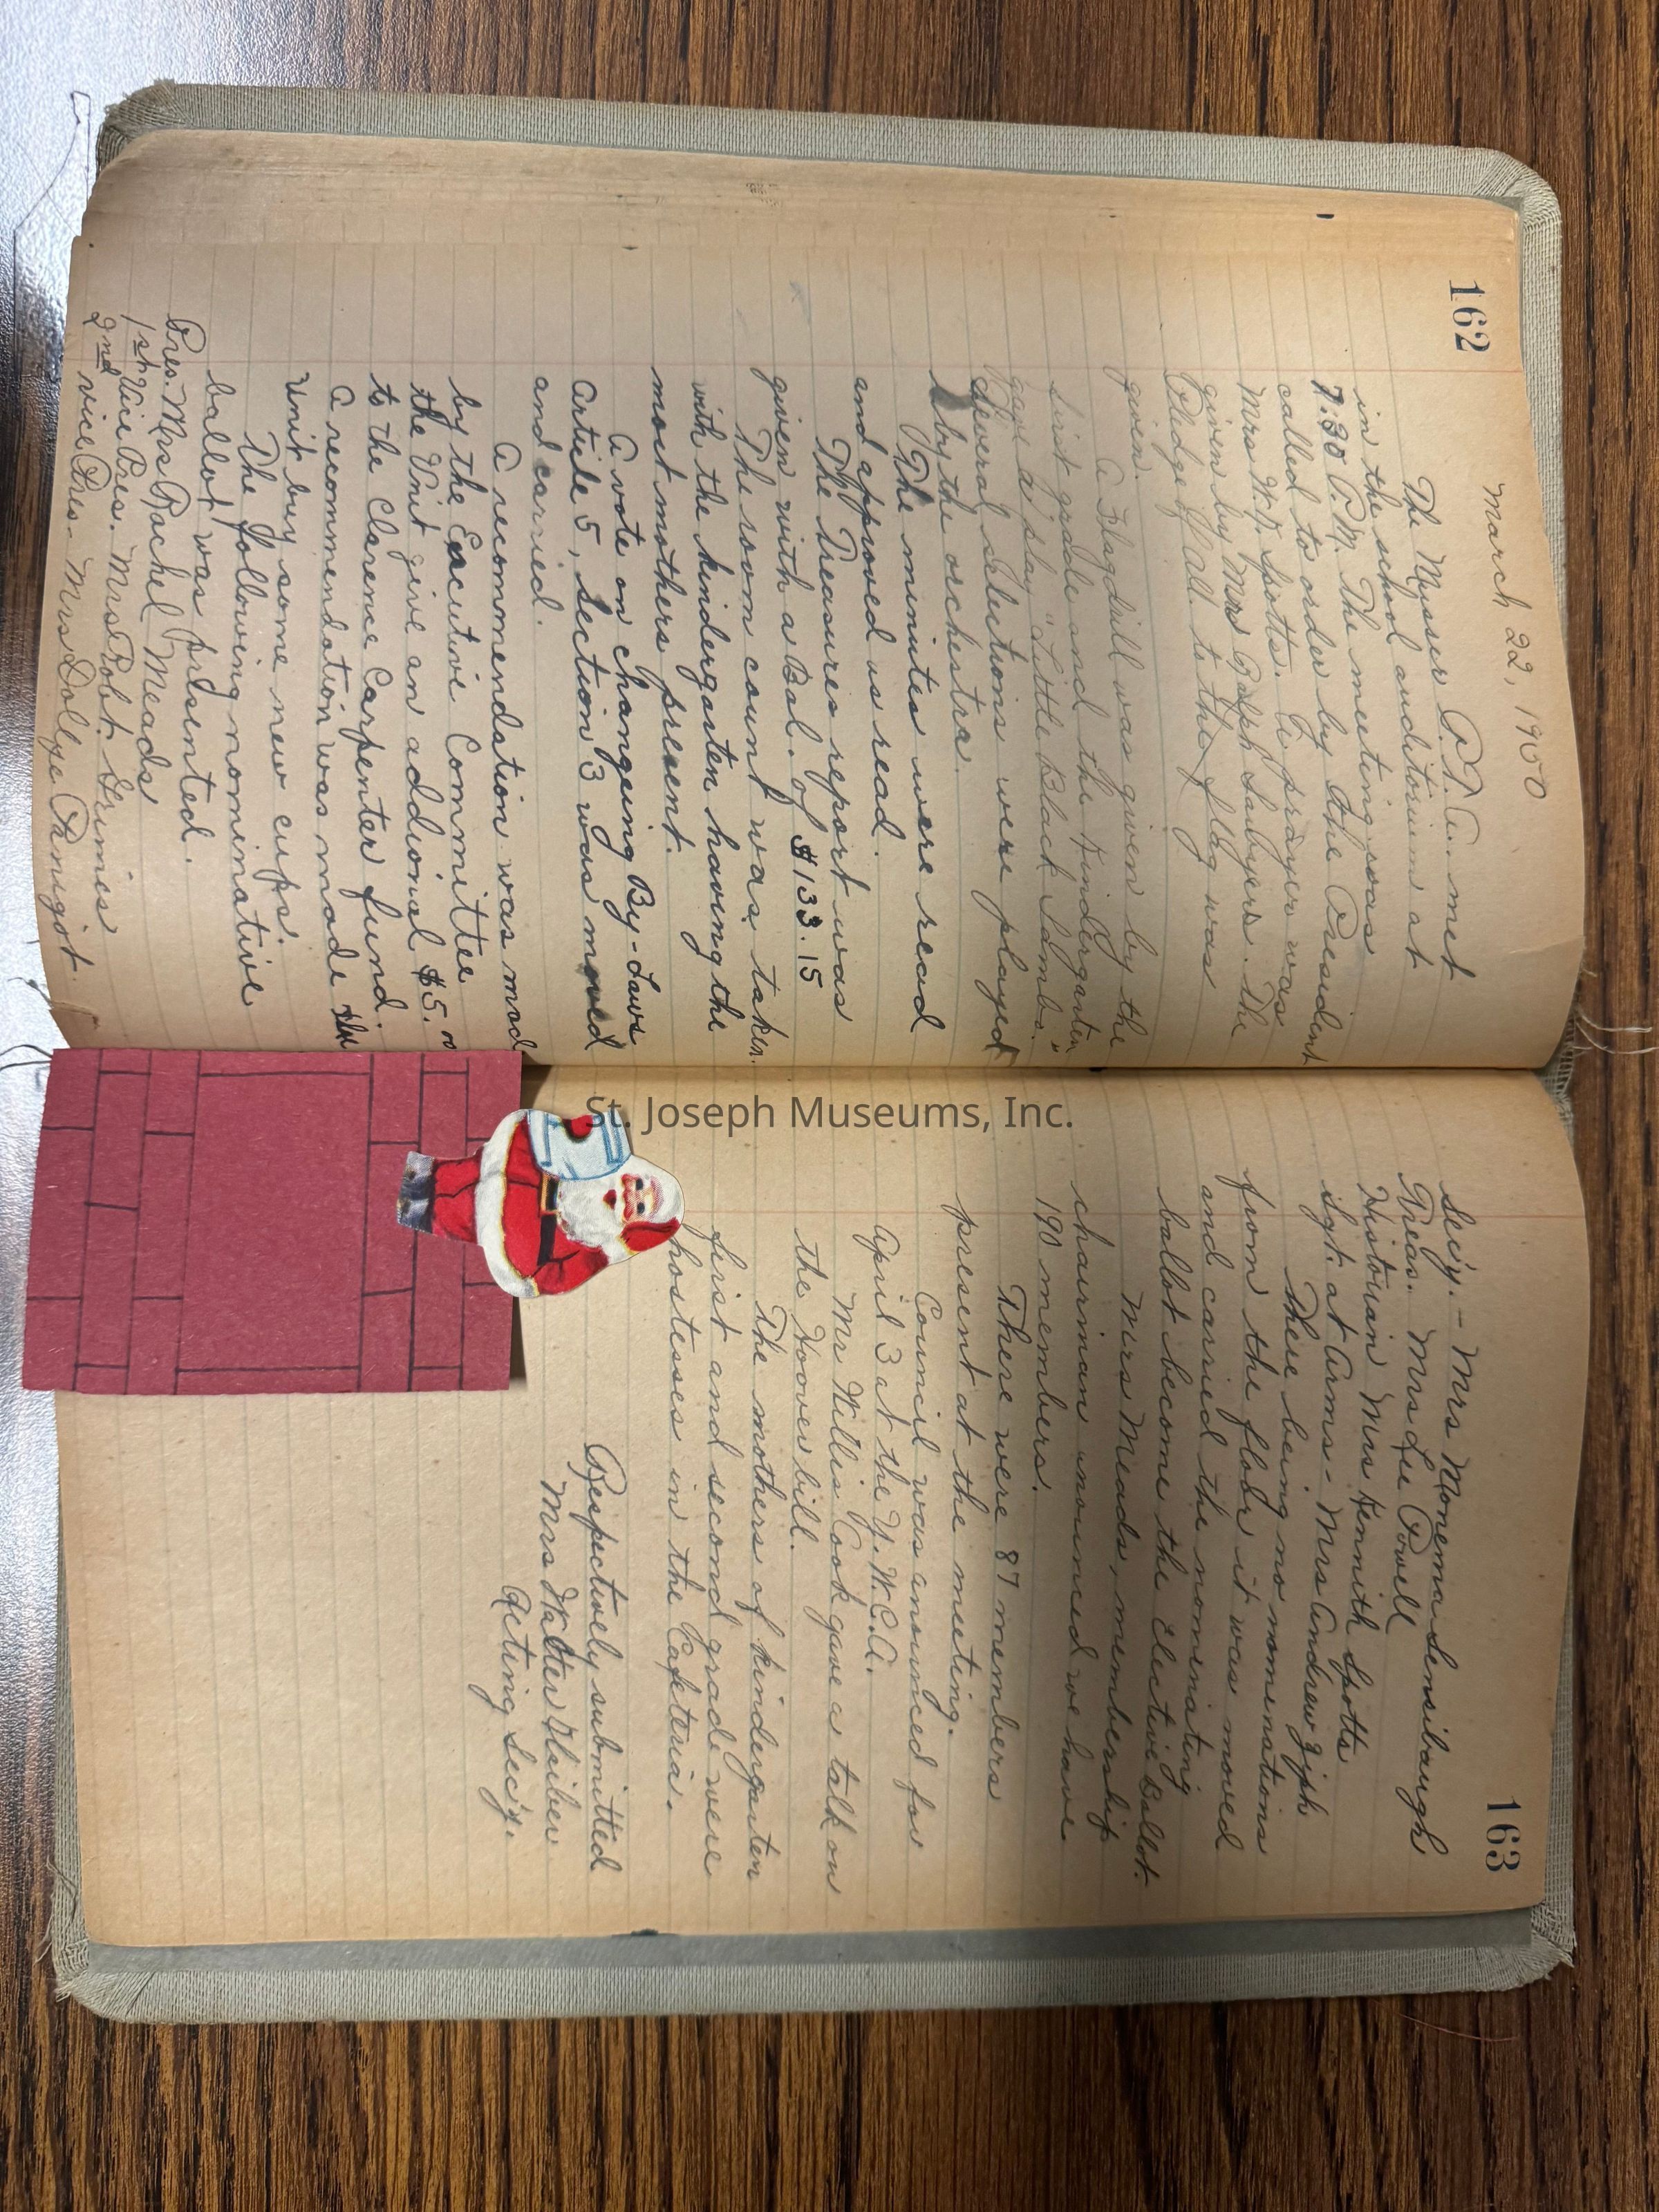 162
March 22, 1950
The Musser P.T.A. met
in the school auditorium at
7:30 P.M. The meeting was
called to order by the President
Mrs W.D. Spotts. A prayer was
given by Mrs Ralph Sawyers. The
Pledge of all to the flag was
given.
A Flag drill was given by the
first grade and the Kindergarten
gave a play "Little Black Sambo."
Several selections were played
by the orchestra.
The minutes were read
and approved as read.
The Treasures report was
given with a Bal. of $133.15
The room count was taken.
with the kindergarten having the
most mothers present.
A vote on changeing By-Laws
Article 5, Section 3 was moved
and carried.
A recommendation was mad
by the Executive Committee
the Unit give an addional $5.00
to the Clarence Carpenter fund.
A recommendation was made the
Unit buy some new cups.
The following nominative
ballot was presented.
Pres. Mrs Rachel Meads
1st Vice Pres. Mrs Robt. Grimes
2nd vice Pres. Mrs Dollye Panigot
163
Sec'y. - Mrs Monema Sensibaugh
Treas. Mrs Lee Powell
Historian Mrs Kennith Spotts
Sgt. at Arms - Mrs Andrew Ziph
There being no nomenations
from the floor it was moved
and carried the nomenating
ballot become the Elective Ballot.
Mrs Meads, membership
chairman anounced we have
190 members.
There were 87 members
present at the meeting.
Council was anounced for
April 3 at the Y.W.C.A.
Mr Willis Cook gave a talk on
the Hoover bill.
The mothers of kindergarten
first and second grade were
hostesses in the Cafeteria.
Respectively submitted
Mrs Walter Klaiber
Acting Sec'y.
St. Joseph Museums, Inc.